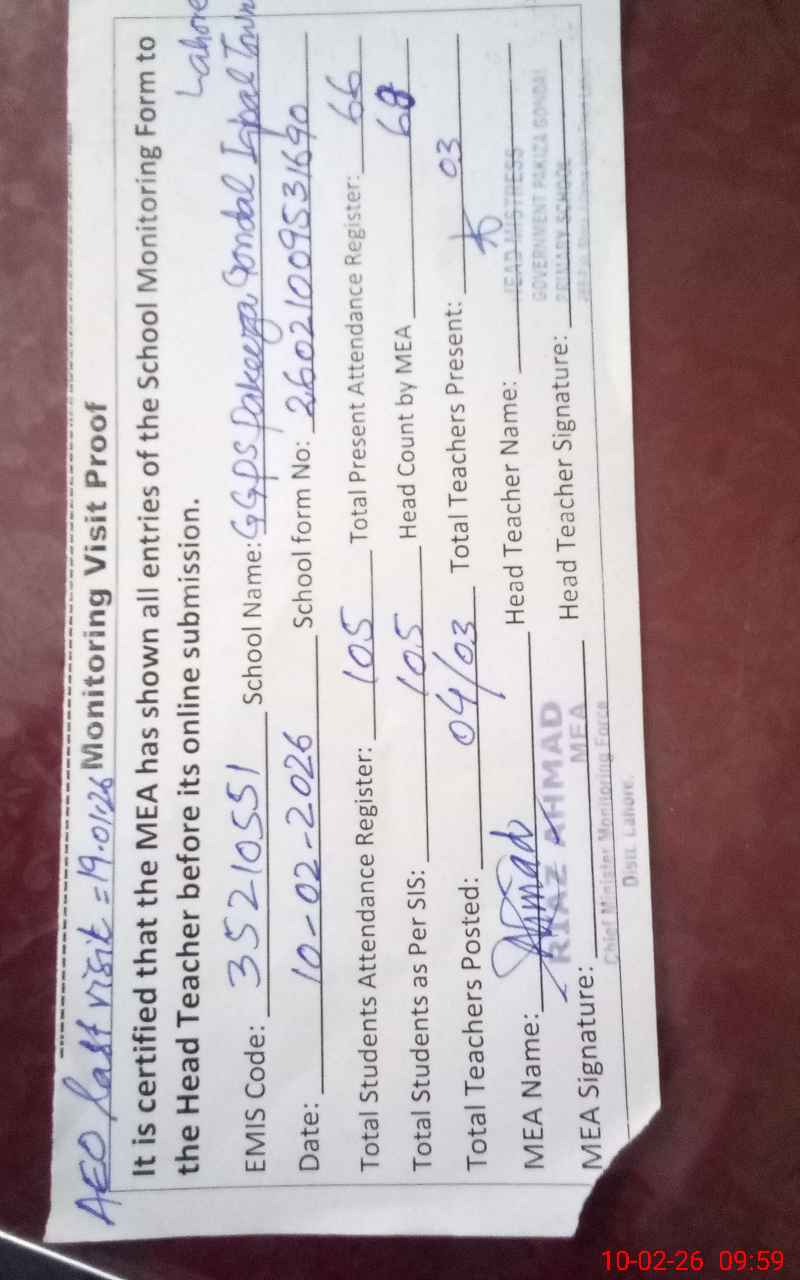 AEO last visit = 19.01.26 Monitoring Visit Proof
It is certified that the MEA has shown all entries of the School Monitoring Form to
the Head Teacher before its online submission.
Lahore
EMIS Code: 35210551 School Name: GGPS Pakeeza Gondal Iqbal Town
Date: 10-02-2026 School form No: 26021009531690
Total Students Attendance Register: 105 Total Present Attendance Register: 66
Total Students as Per SIS: 105 Head Count by MEA 68
Total Teachers Posted: 04/03 Total Teachers Present: 03
MEA Name: Ahmad Head Teacher Name:
RIAZ AHMAD
MEA
HEAD MISTRESS
GOVERNMENT PAKIZA GONDAL
PRIMARY SCHOOL
MEA Signature: Head Teacher Signature:
Chief Minister Monitoring Force
Distt. Lahore.
10-02-26 09:59